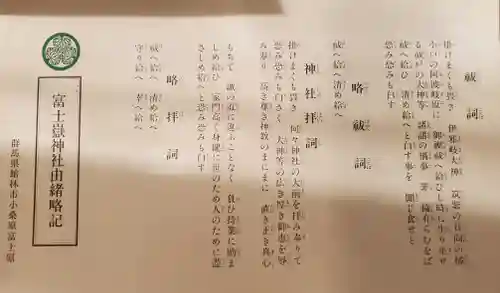 祓詞
掛けまくも畏き 伊邪岐大神 筑紫の日向の橘
小戸の阿波岐原に 御禊祓へ給ひし時に生り坐せ
る祓戸の大神等 諸諸の禍事 罪 穢有らむをば
祓へ給ひ 清め給へと白す事を 聞し食せと
恐み恐みも白す
略祓詞
祓へ給へ清め給へ
神社拝詞
掛けまくも畏き 何々神社の大前を拝み奉りて
恐み恐みも白さく 大神等の広き厚き御恵を辱
み奉り 高き尊き神教のまにまに 直き正き真心
もちて 誠の道に違ふことなく 負ひ持つ業に励ま
しめ給ひ 家門高く身健に 世のため人のために尽
さしめ給へと恐み恐みも白す
略拝詞
祓へ給へ 清め給へ
守り給へ 幸へ給へ
富士嶽神社由緒略記
群馬県館林市小桑原富士原